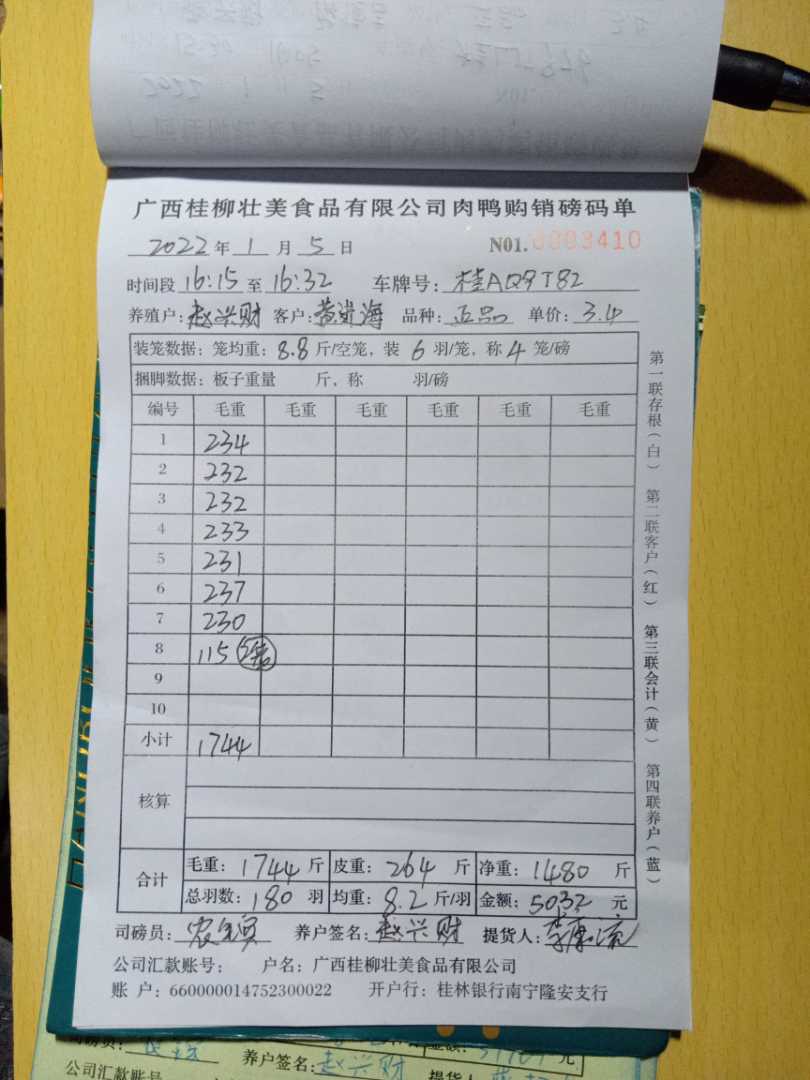 广西桂柳壮美食品有限公司肉鸭购销磅码单
2022年1月5日 N01.0003410
时间段16:15至16:32 车牌号:桂AQ9T82
养殖户:赵兴财 客户:黄海 品种:正品 单价:3.4
装笼数据:笼均重:8.8斤/空笼,装6羽/笼,称4笼/磅
捆脚数据:板子重量 斤,称 羽/磅
编号 毛重 毛重 毛重 毛重 毛重 毛重
1 234
2 232
3 232
4 233
5 231
6 237
7 230
8 115
9
10
小计 1744
核算
合计 毛重:1744斤 皮重:264斤 净重:1480斤
总羽数:180羽 均重:8.2斤/羽 金额:5032元
司磅员: 养户签名:赵兴财 提货人:李
公司汇款账号: 户名:广西桂柳壮美食品有限公司
账 户:660000014752300022 开户行:桂林银行南宁隆安支行
第一联存根(白) 第二联客户(红) 第三联会计(黄) 第四联养户(蓝)
司磅员: 养户签名:赵兴财
公司汇款账号